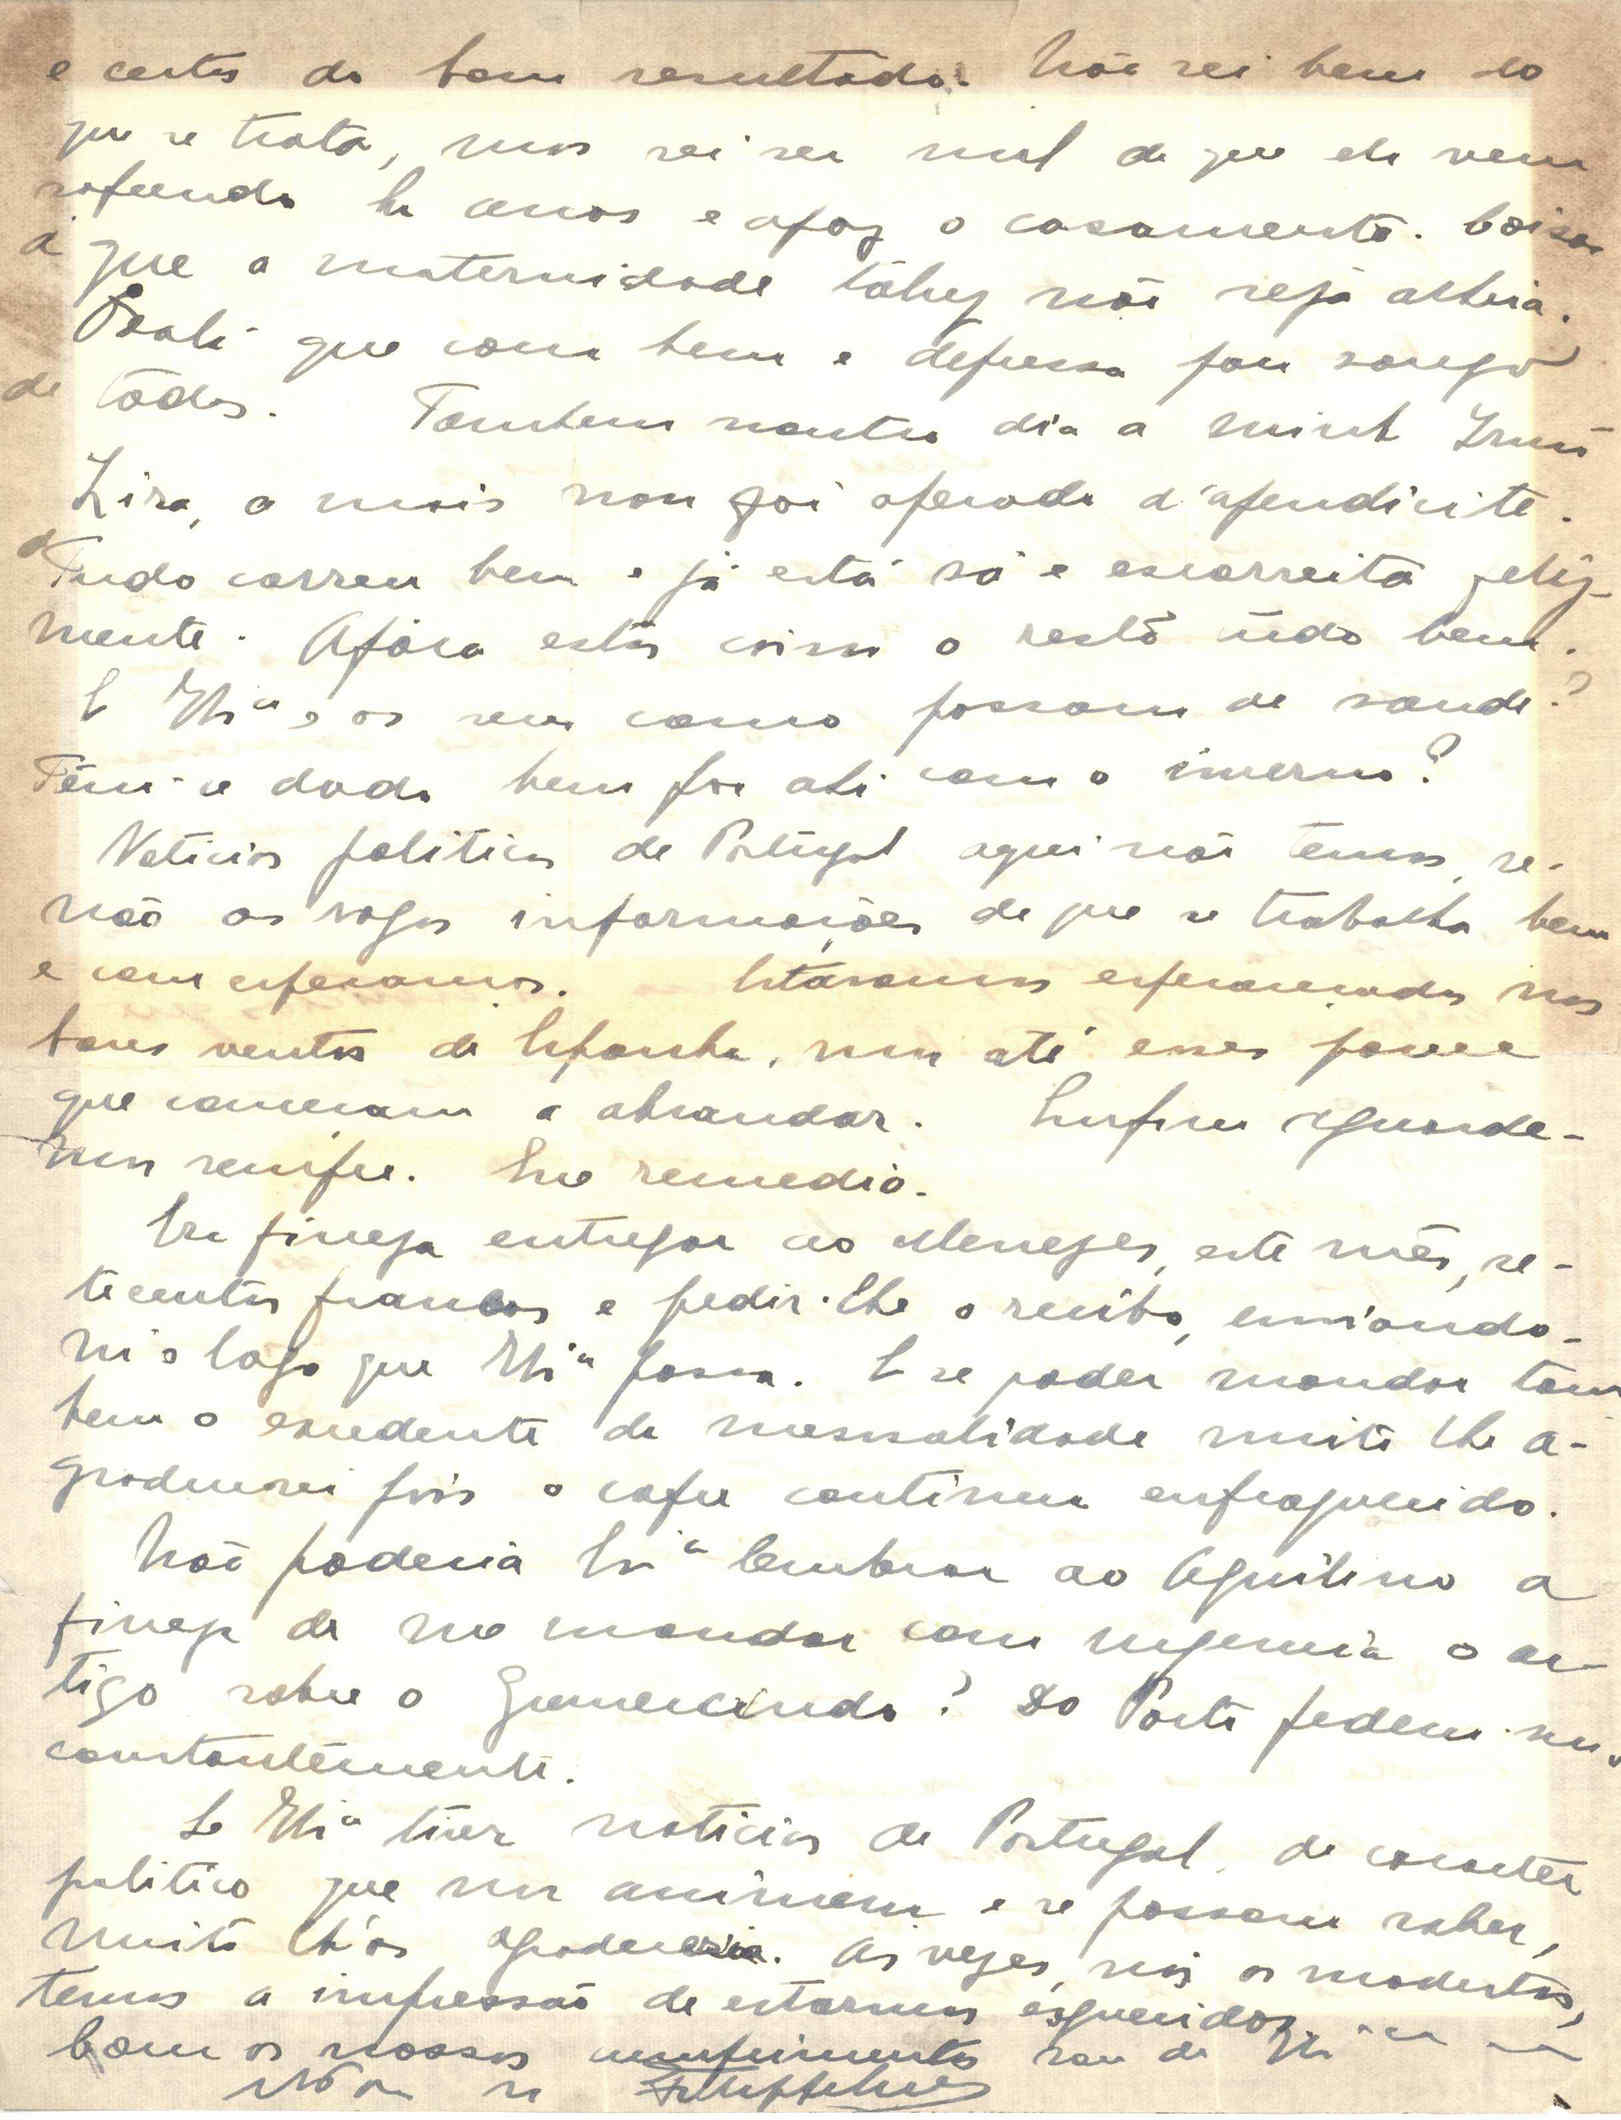 e certos do bom resultado. Não sei bem do
que se trata, mas sei ser mal de que ela vem
sofrendo ha anos e após o casamento. Coisas
a que a maternidade talvez não seja alheia.
Oxalá que corra bem e depressa para sossego
de todos. Tambem noutro dia a minha Irmã
Lira, a mais nova foi operada d'apendicite.
Tudo correu bem e já está sã e escorreita feliz-
mente. Afóra estas coisas o resto tudo bem.
E V. Exia e os seus como passam de saude?
Tem-se dado bem por ali com o inverno?
Noticias politicas de Portugal aqui não temos, se-
não as vagas informações de que se trabalha bem
e com esperanças. Estavamos esperançados nos
bons ventos de Espanha, mas até esses parece
que começam a abrandar. Enfim aguarde-
mos sempre. Que remedio.
Era fineza entregar ao Menezes, este mês, se-
tecentos francos e pedir-lhe o recibo, enviando-
m'o logo que V. Exia possa. E se poder mandar tam
bem o excedente da mensalidade muito lhe a-
gradecerei pois o cofre continua enfraquecido.
Não poderia V. Exia lembrar ao Aquilino a
fineza de me mandar com urgencia o ar-
tigo sobre o Gumercindo? Do Porto pedem-m'o
constantemente.
Se V. Exia tiver noticias de Portugal, de caracter
politico que nos animem e se possam saber,
muito lh'as agradeceria. As vezes, nós os modestos,
temos a impressão de estarmos esquecidos.
Com os nossos cumprimentos sou de V. Exia